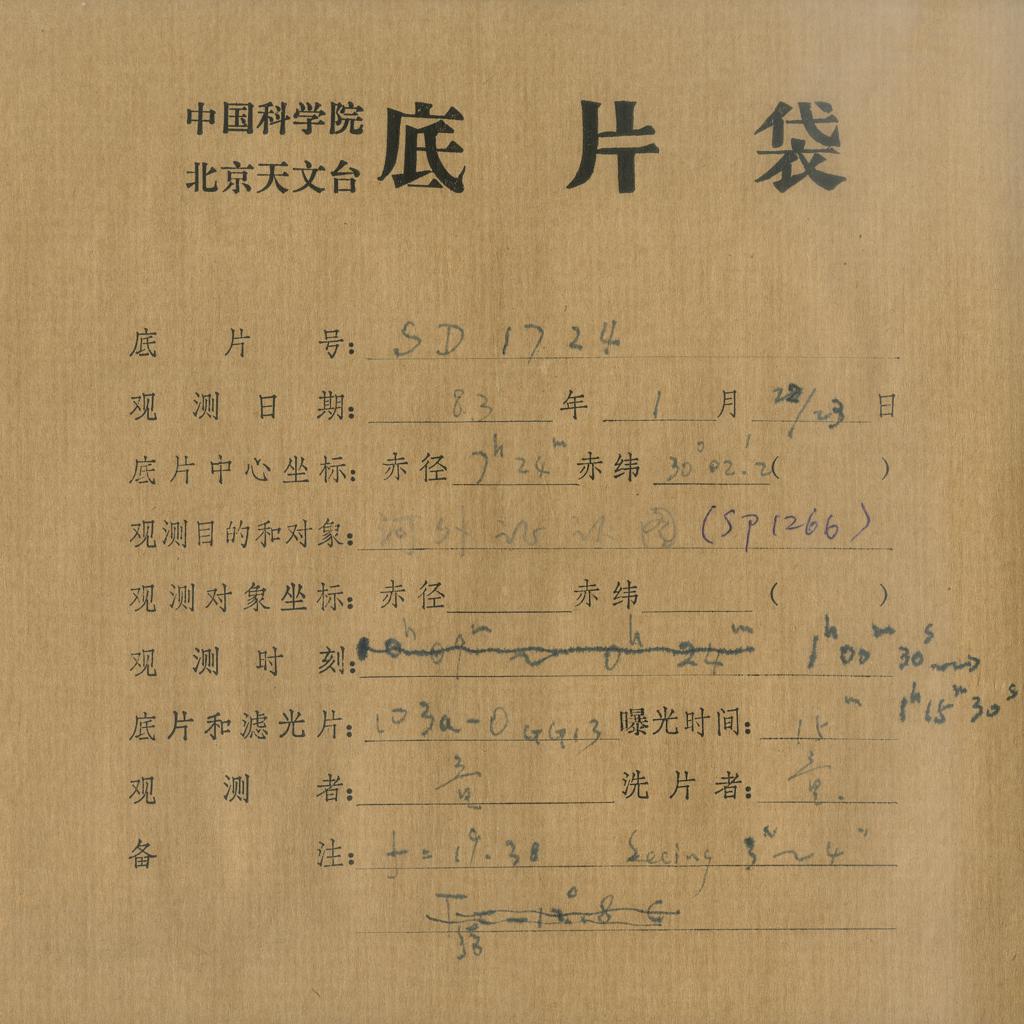 中国科学院
北京天文台
底片袋
底片号: SD 1724
观测日期: 83 年 1 月 22/23 日
底片中心坐标: 赤径 7h 24m 赤纬 30°02.'2 ( )
观测目的和对象: 河外 图 (SP1266)
观测对象坐标: 赤径 赤纬 ( )
观测时刻: 0h 24m 1h 00m 30s ~
1h 15m 30s
底片和滤光片: 103a-O GG13 曝光时间: 15m
观测者: 洗片者:
备注: f = 19.30 Seeing 3"~4"